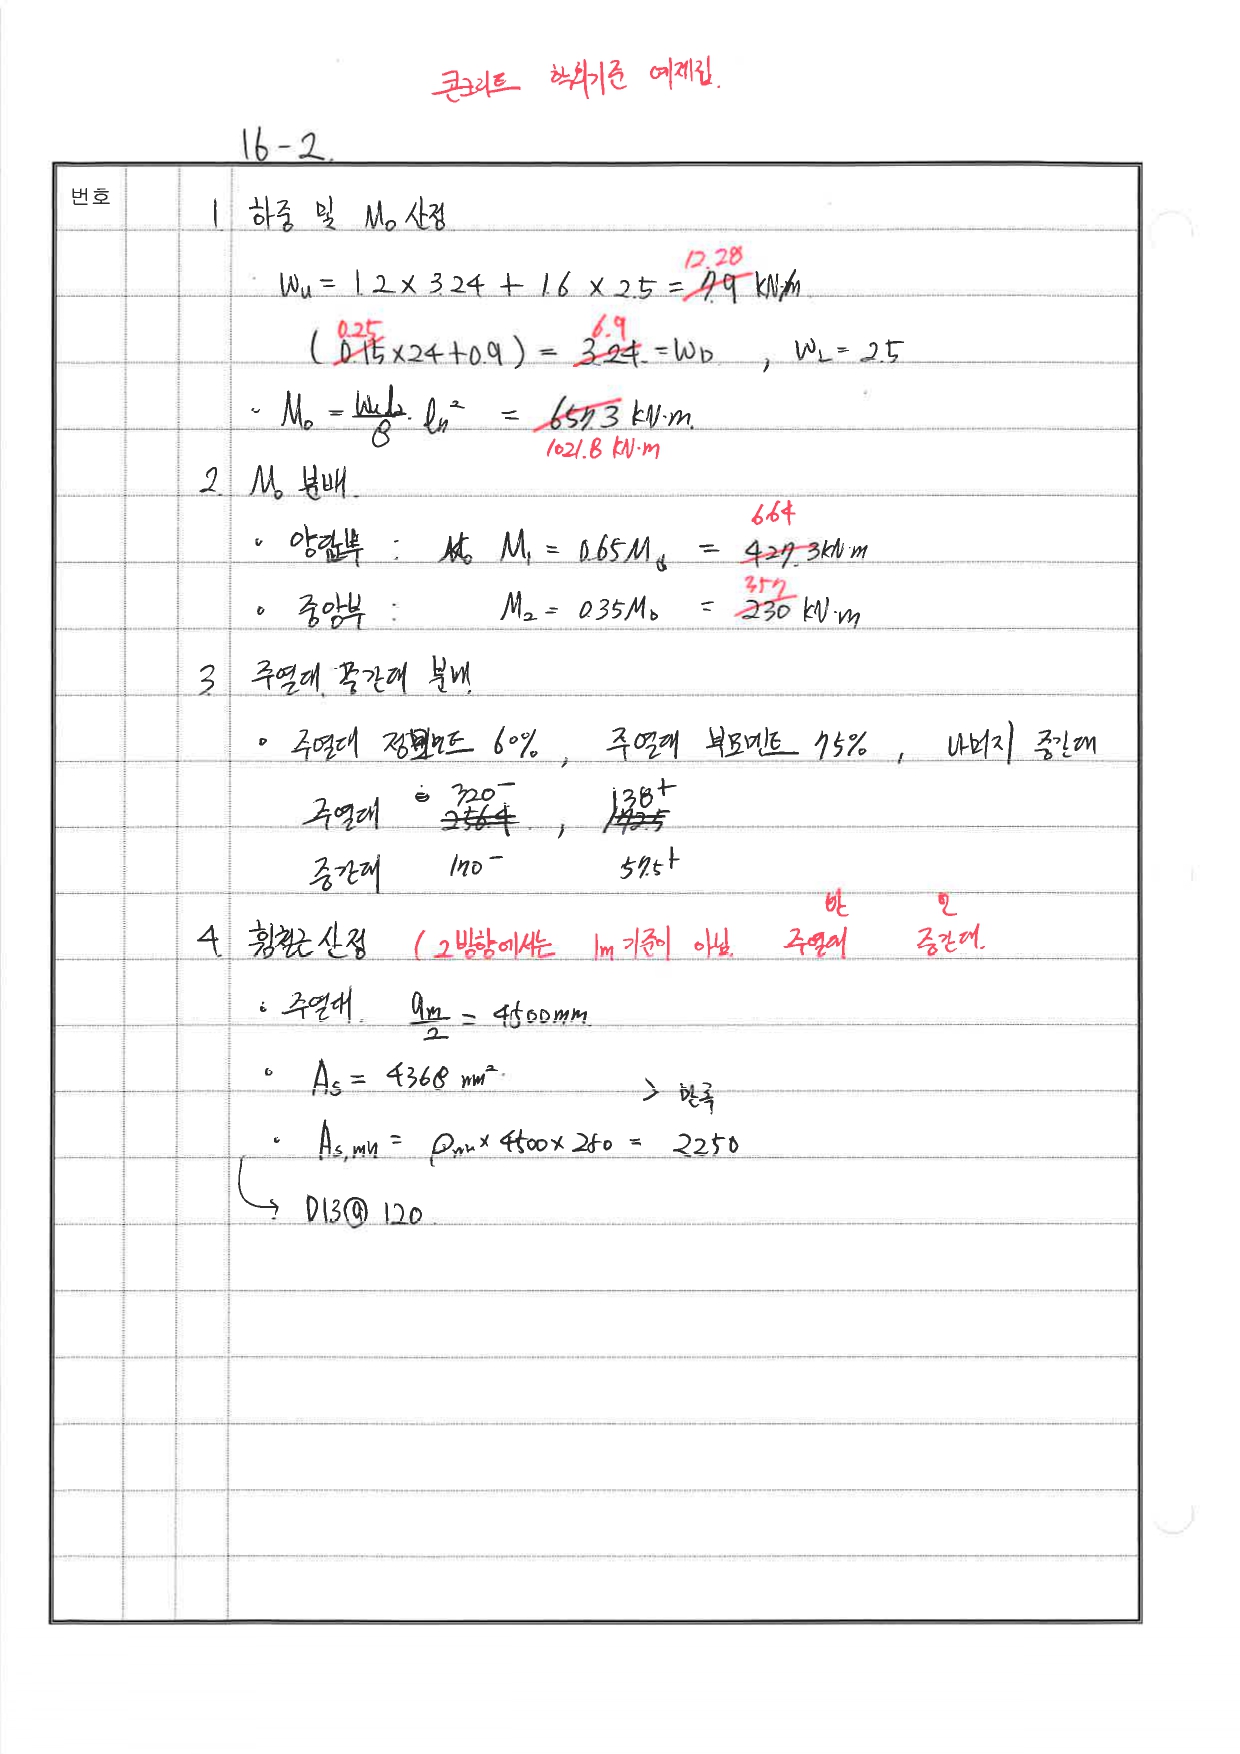 콘크리트 학회기준 예제집.
16-2.
번호
1 하중 및 M₀ 산정
Wu = 1.2 × 3.24 + 1.6 × 2.5 = 7.9 kN/m 12.28
(0.15×24+0.9) = 3.24 = W_D , W_L = 2.5 0.25 6.9
· M₀ = Wu l₂/8 · ln² = 657.3 kN·m.
1021.8 kN·m
2. M₀ 분배.
664
· 양단부 : M₁ = 0.65M₀ = 427.3kN·m
357
· 중앙부 : M₂ = 0.35M₀ = 230 kN·m
3. 주열대, 중간대 분배.
· 주열대 정모멘트 60%, 주열대 부모멘트 75%, 나머지 중간대
320⁻ 138⁺
주열대 256.4 , 172.5
중간대 170⁻ 57.5⁺
4. 휨철근 산정 (2방향에서는 1m 기준이 아님. 주열대 중간대.
: 주열대. 9m/2 = 4500mm
· As = 4368 mm²
> 만족
· As,min = ρmin × 4500 × 250 = 2250
→ D13@120